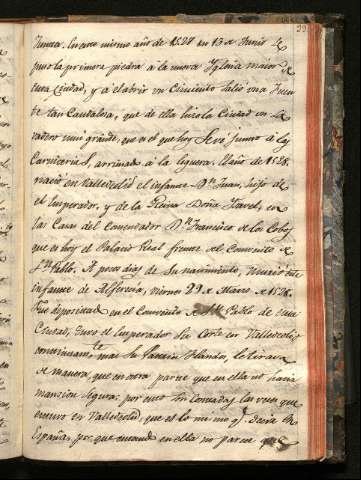 23
nunca. En este mismo año de 1528 en 13 de Junio Se
puso la primera piedra à la nueva Yglesia maior de
esta Ciudad, y à el abrir un Cimiento Salio una Fuen
te tan Caudalosa, que de ella hizo la Ciudad un la
vadero mui grande, que es el que hoy Se vè junto à las
Carnicerias, arrimado à la
nacio en Valladolid el infante Dn. Juan, hijo de
el Emperador, y de la Reina Doña Isavel, en
las Casas del Comendador Dn. Francisco de los Cobos
que es hoy el Palacio Real frente de el Convento de
Sn. Pablo. A pocos dias de Su nacimiento, Murió este
infante de Alferecia, viernes 29 de Marzo de 1528.
Fue depositado en el Convento de Sn. Pablo de esta
Ciudad, tuvo el Emperador Su Corte en Valladolid
continuamte. mas Su Flandes, le tirava
de manera, que en otra parte que en ella no hacia
mansion segura; por esto Son Contadas las veces que
estuvo en Valladolid, que es lo mismo q. decir en
España, por que estando en ella no parece que